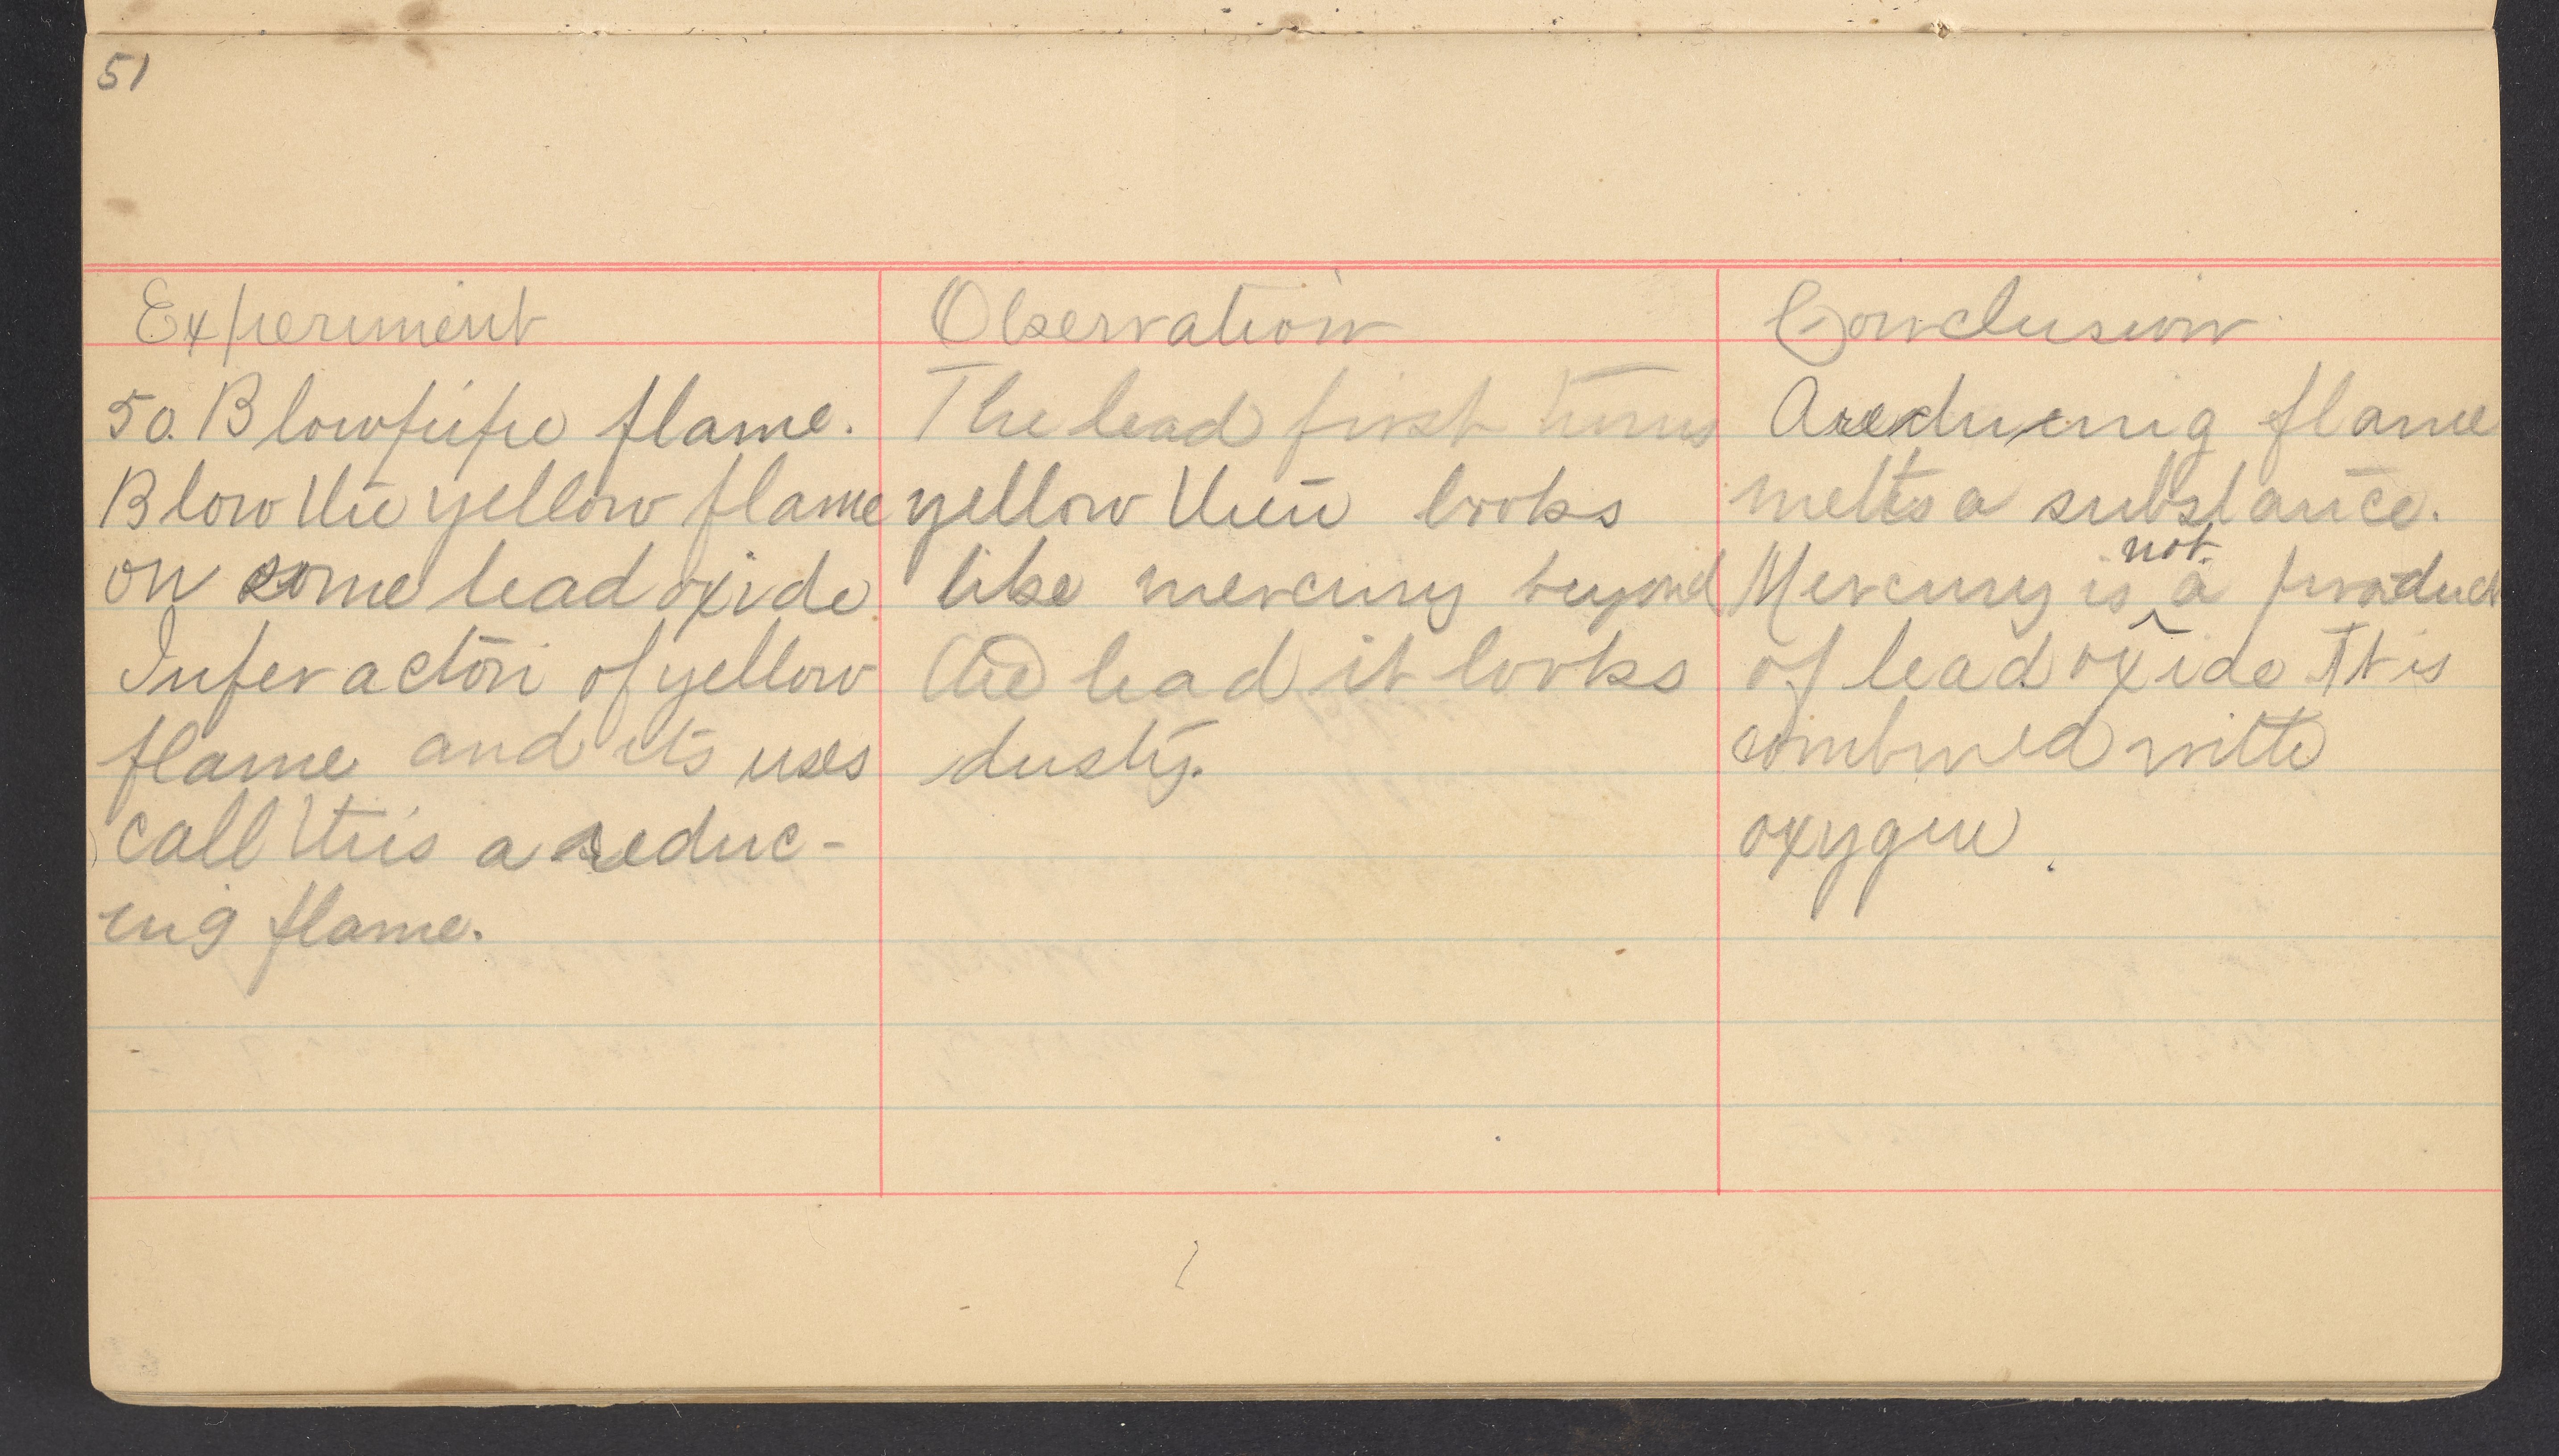 51
Experiment
50. Blowpipe flame.
Blow the yellow flame
on some lead oxide
Infer action of yellow
flame and its uses
call this a reduc-
ing flame.
Observation
The lead first turns
yellow then looks
like mercury beyond
the lead it looks
dusty.
Conclusion
A reducing flame
melts a substance.
not
Mercury is ^ a product
of lead oxide It is
combined with
oxygen.